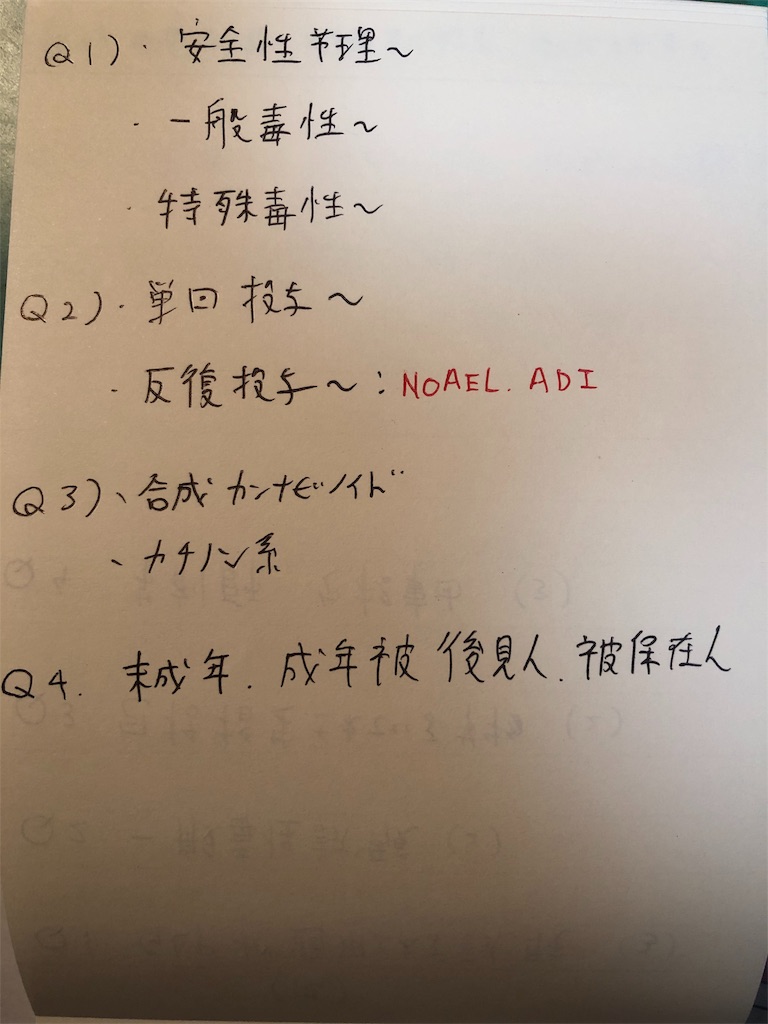 Q1)・安全性节理～
・一般毒性～
・特殊毒性～
Q2)・単回投与～
・反復投与～：NOAEL. ADI
Q3)、合成カンナビノイド
、カチノン系
Q4. 未成年. 成年被後見人. 被保在人